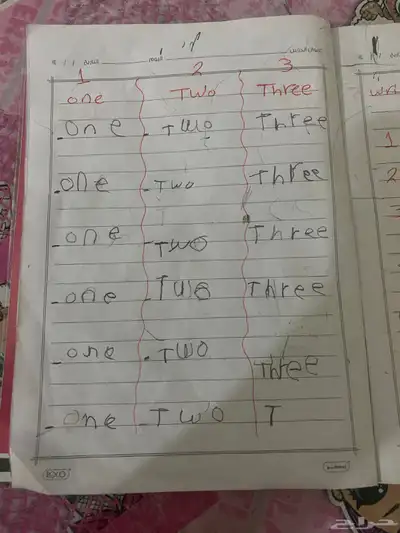 1 2 3
one Two Three
-One -Two Three
-One -Two Three
-one -Two Three
-one -Two Three
-one -Two Three
-One -Two T
1
2
3
EXO
حراج